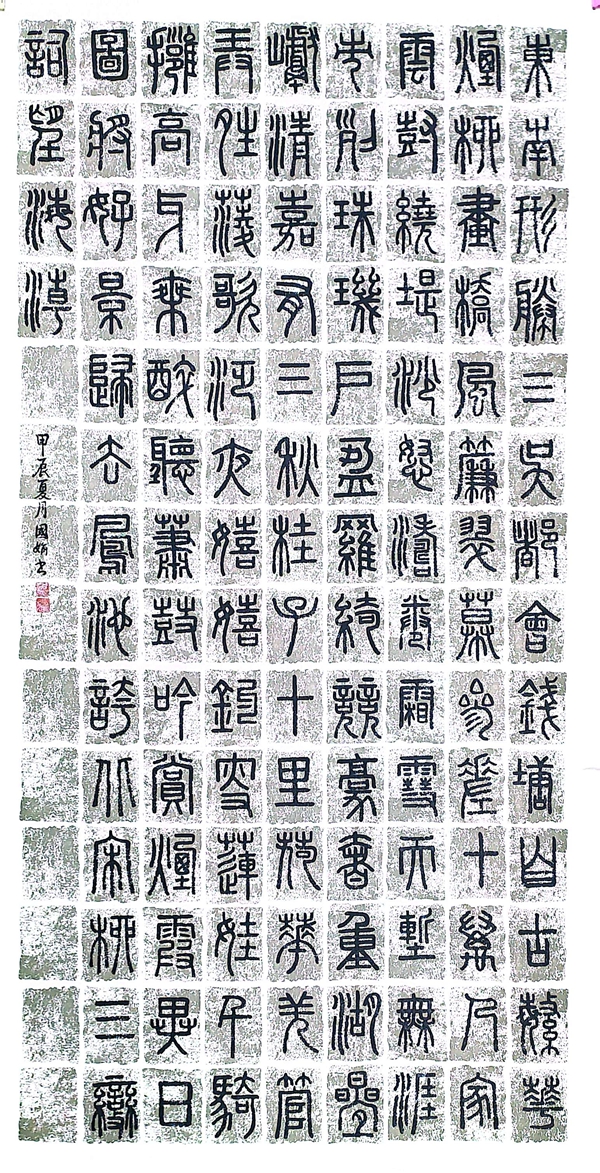 東南形勝三吳都會錢塘自古繁華
煙柳畫橋風簾翠幕參差十萬人家
雲樹繞堤沙怒濤卷霜雪天塹無涯
市列珠璣戶盈羅綺競豪奢重湖疊
巘清嘉有三秋桂子十里荷華羌管
弄晴菱歌泛夜嬉嬉釣叟蓮娃千騎
擁高牙乘醉聽蕭鼓吟賞煙霞異日
圖將好景歸去鳳池誇北宋柳三變
詞望海潮
甲辰夏月國書